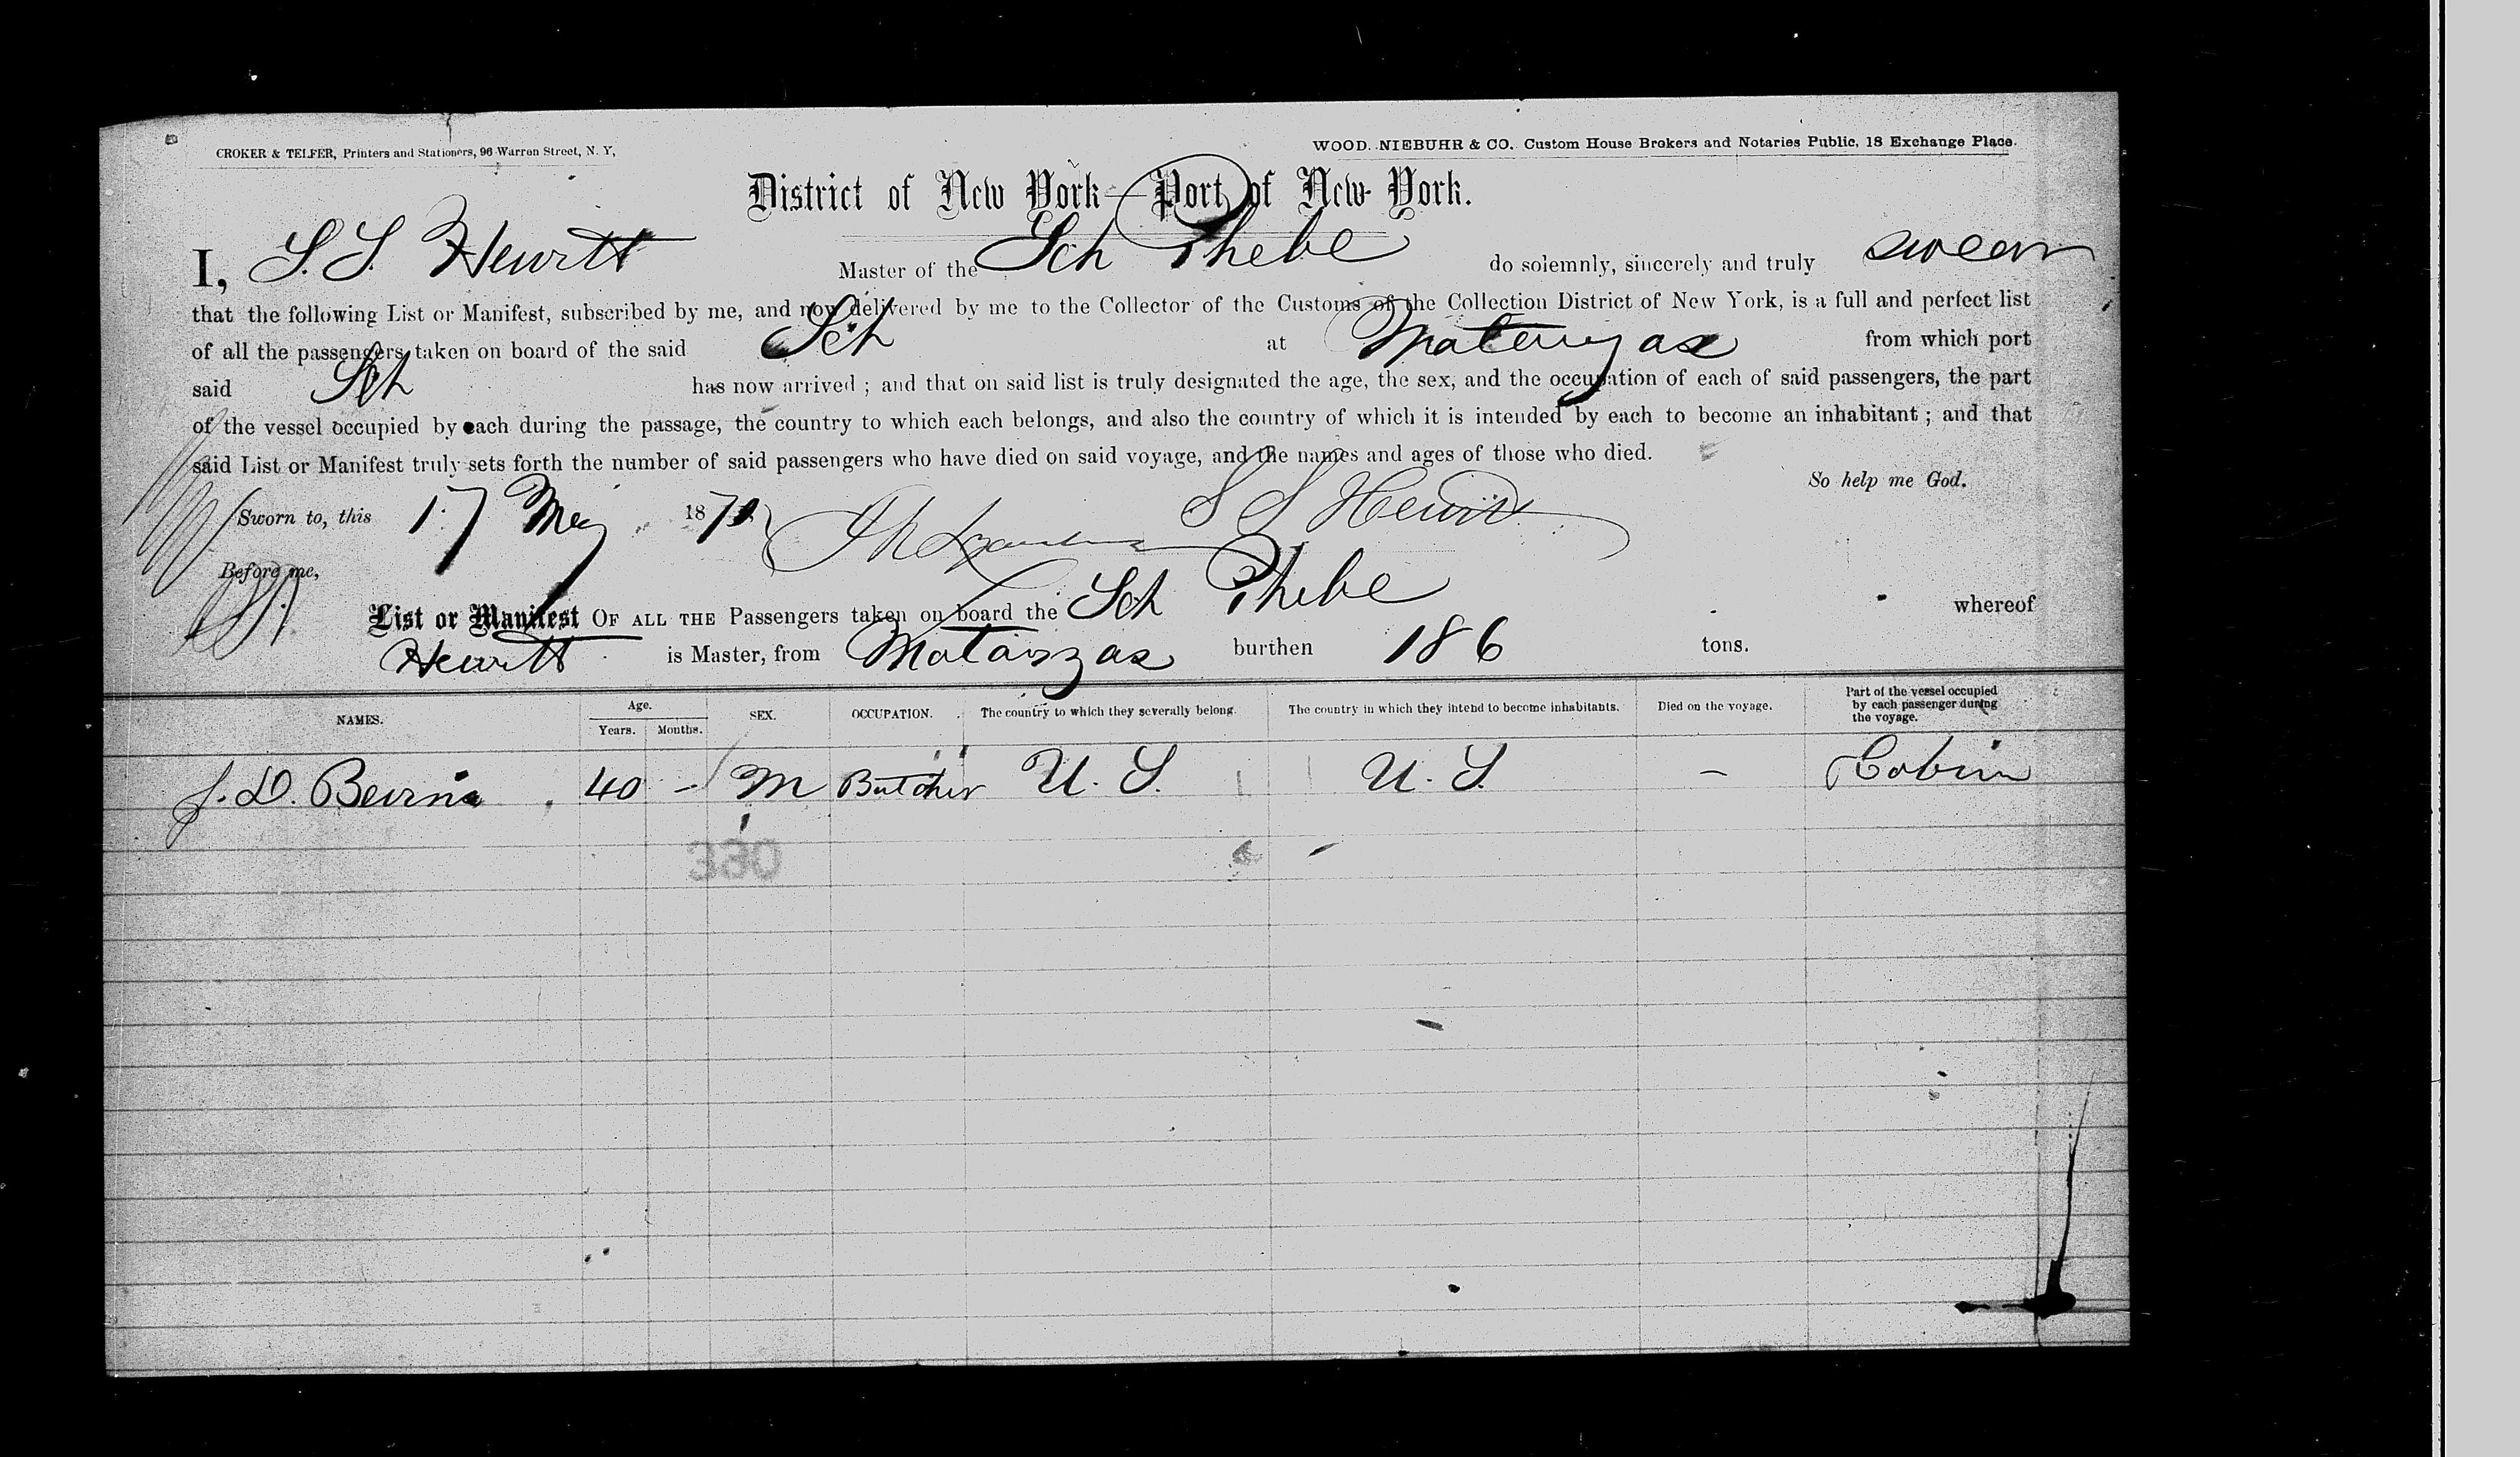 CROKER & TELFER, Printers and Stationers, 96 Warren Street, N. Y,
WOOD. NIEBUHR & CO. Custom House Brokers and Notaries Public, 18 Exchange Place.
District of New York—Port of New York.
I, S. S. Hewitt Master of the Sch Phebe do solemnly, sincerely and truly swear
that the following List or Manifest, subscribed by me, and now delivered by me to the Collector of the Customs of the Collection District of New York, is a full and perfect list
of all the passengers taken on board of the said Sch at Matanzas from which port
said Sch has now arrived ; and that on said list is truly designated the age, the sex, and the occupation of each of said passengers, the part
of the vessel occupied by each during the passage, the country to which each belongs, and also the country of which it is intended by each to become an inhabitant ; and that
said List or Manifest truly sets forth the number of said passengers who have died on said voyage, and the names and ages of those who died.
So help me God.
Sworn to, this 17 May 187 S S Hewitt
Before me,
List or Manifest OF ALL THE Passengers taken on board the Sch Phebe whereof
Hewitt is Master, from Matanzas burthen 186 tons.
NAMES. Age. Years. Months. SEX. OCCUPATION. The country to which they severally belong. The country in which they intend to become inhabitants. Died on the voyage. Part of the vessel occupied by each passenger during the voyage.
J. D. 40 - M Butcher U. S. U. S. — Cabin
360